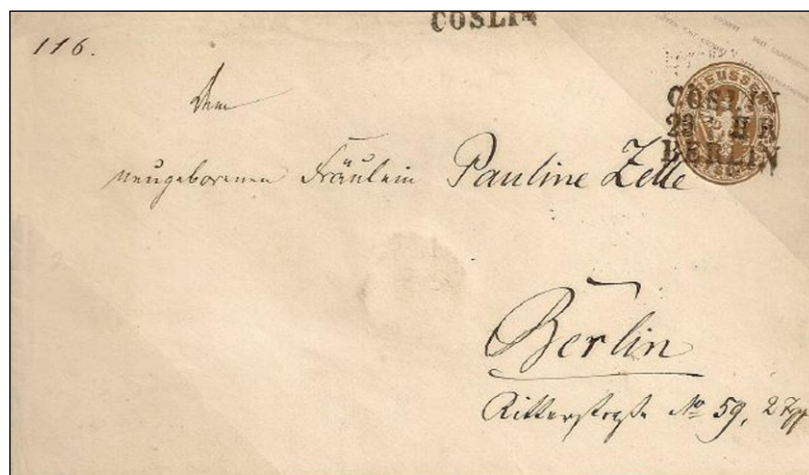 COSLIN
116.
PREUSSEN
COSLIN
II R
BERLIN
Dem
neugeborenen Fräulein Pauline Zelle
Berlin
Ritterstraße No 59, 2